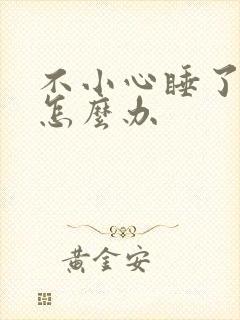 不小心睡了
怎麼办
黄金安